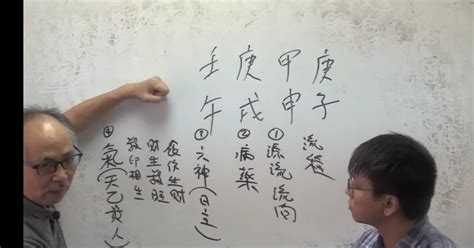 庚子
甲申
庚戌
壬午
流程
①源流流向
②病藥
③六神(日主)
食伤生財
財生殺旺
殺印相生
④氣(天乙貴人)